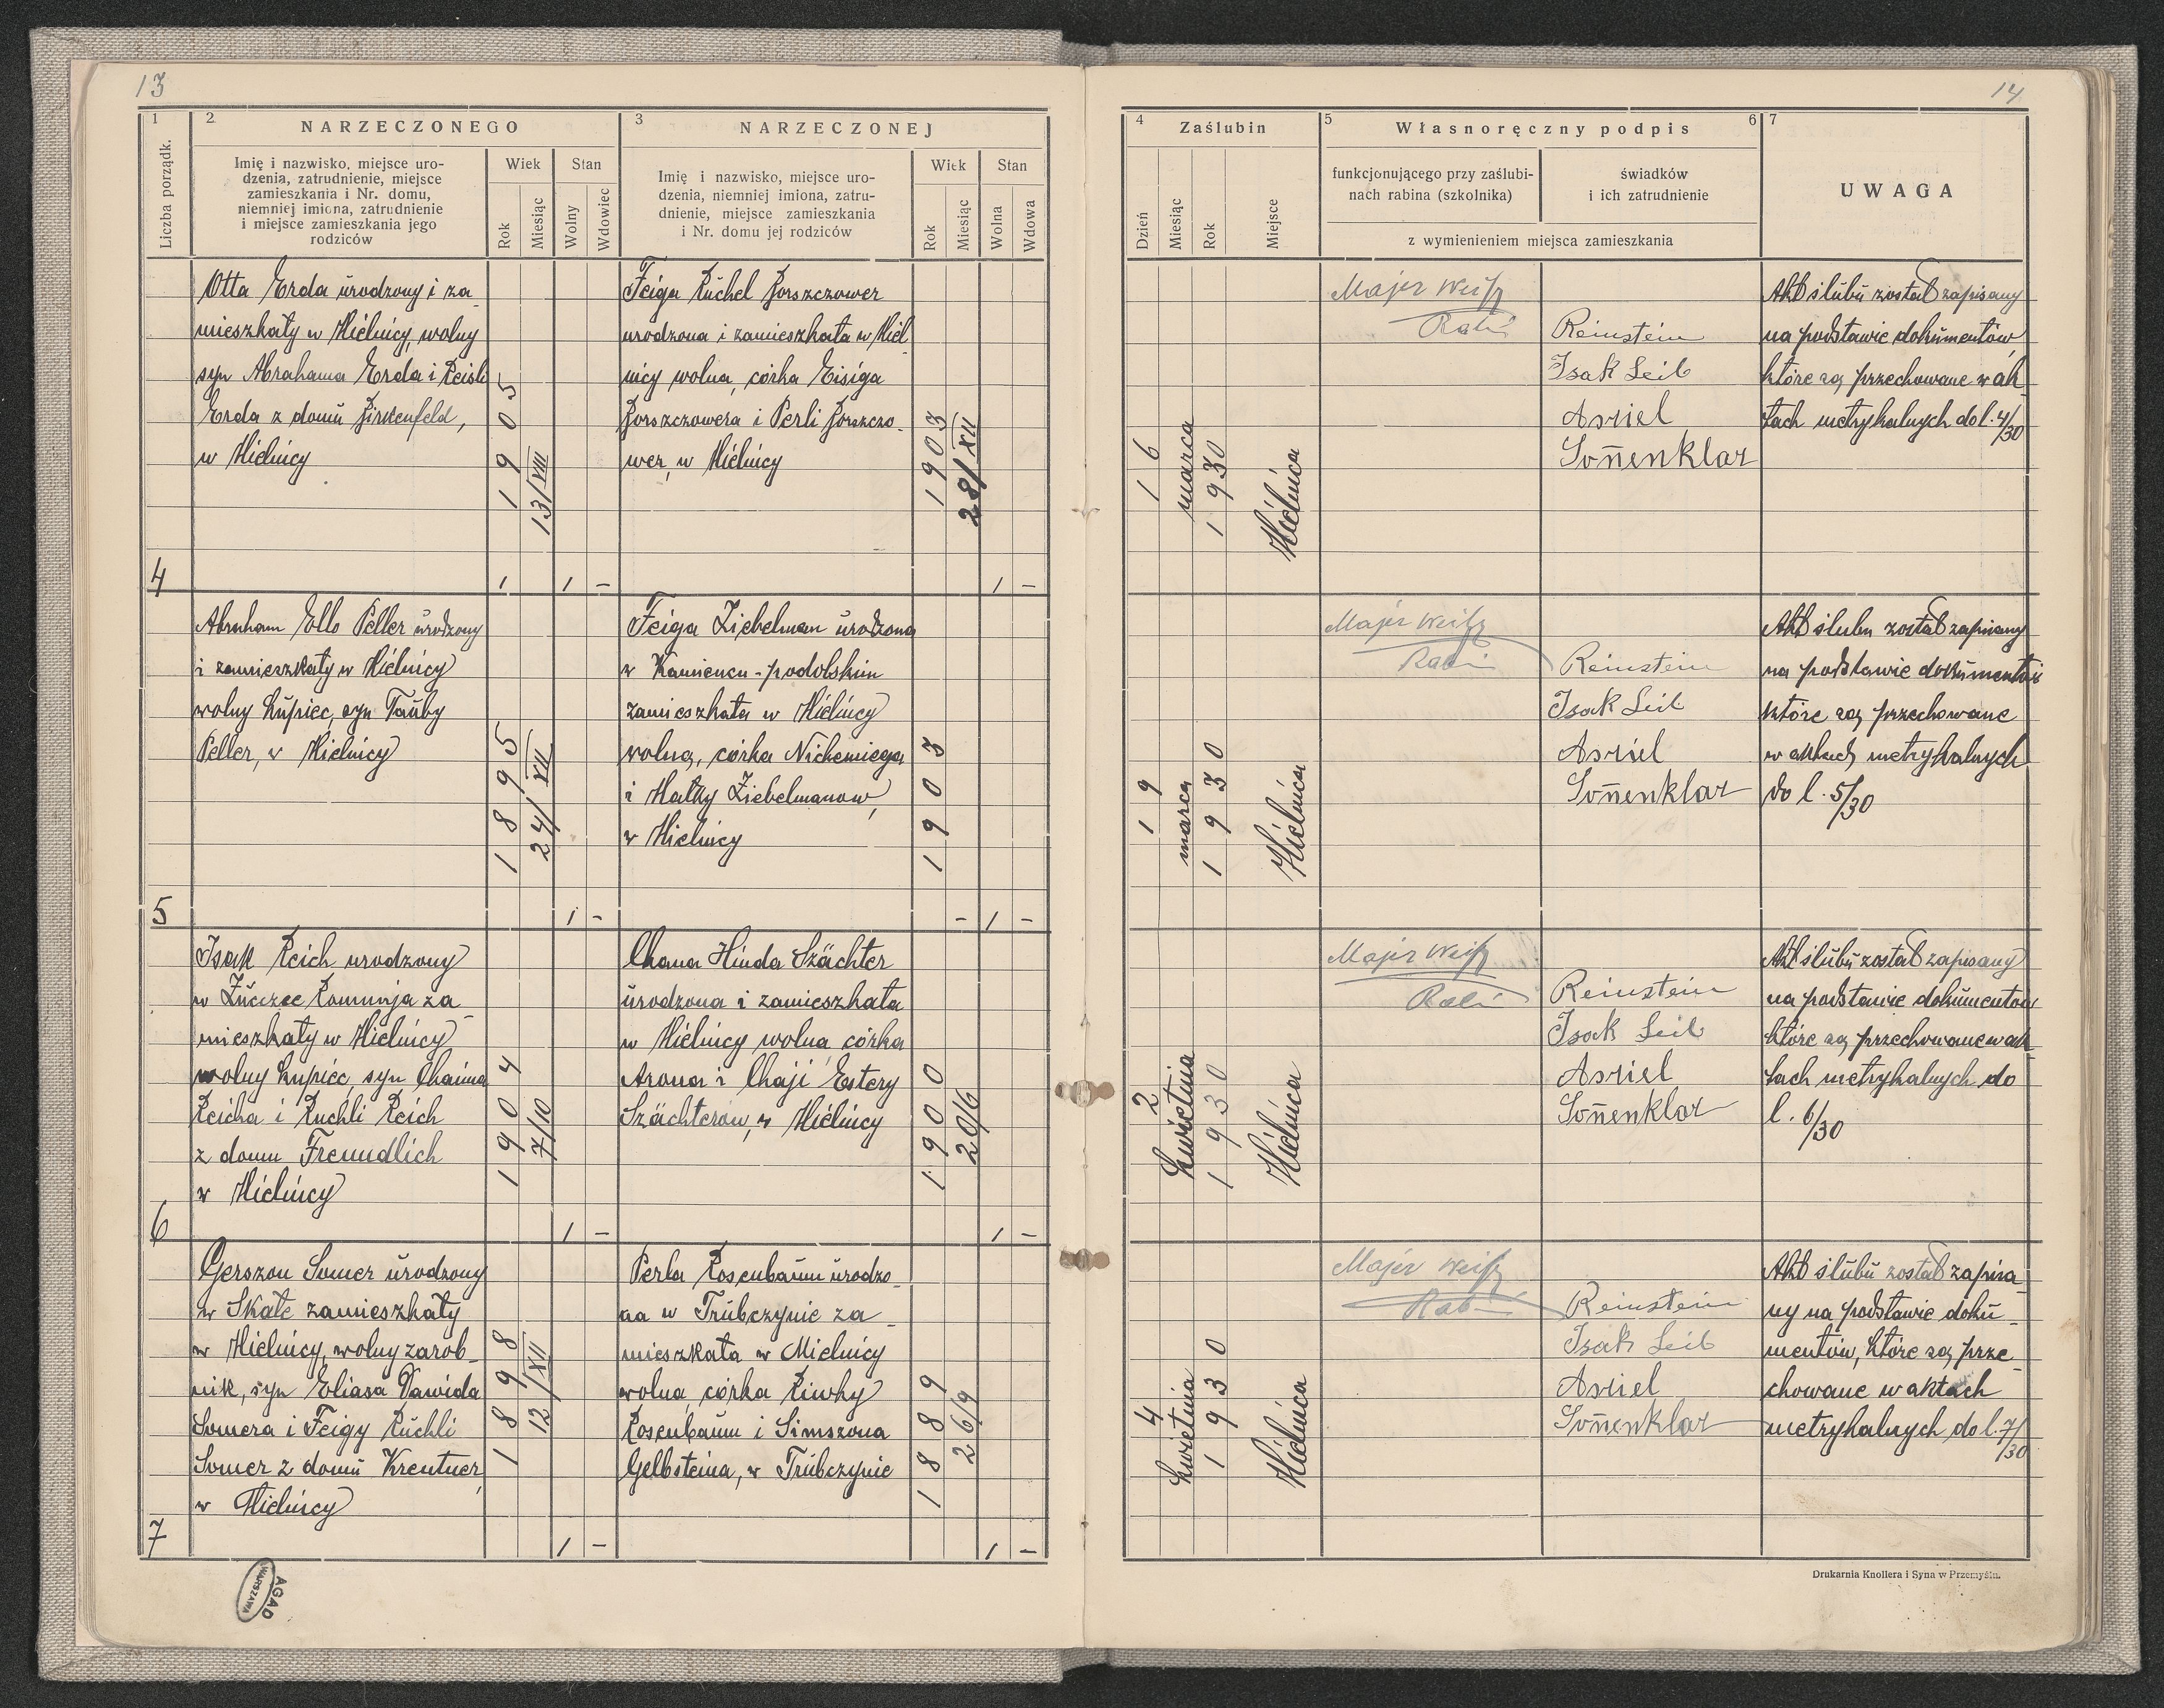 13
1
2
NARZECZONEGO
3
NARZECZONEJ
Liczba porządk.
Imię i nazwisko, miejsce uro-
dzenia, zatrudnienie, miejsce
zamieszkania i Nr. domu,
niemniej imiona, zatrudnienie
i miejsce zamieszkania jego
rodziców
Wiek
Stan
Rok
Miesiąc
Wolny
Wdowiec
Imię i nazwisko, miejsce uro-
dzenia, niemniej imiona, zatru-
dnienie, miejsce zamieszkania
i Nr. domu jej rodziców
Wiek
Stan
Rok
Miesiąc
Wolna
Wdowa
4
Otta Erda urodzony i za-
mieszkały w Mielnicy, wolny
syn Abrahama Erda i Reisli
Erda z domu Birkenfeld,
w Mielnicy
1905
13/VIII
1 1 –
Feiga Ruchel Borszczower
urodzona i zamieszkała w Miel
nicy wolna, córka Eisiga
Borszczowera i Perli Borszczo-
wer, w Mielnicy
1903
28/XII
1 –
5
Abraham Ello Peller urodzony
i zamieszkały w Mielnicy
wolny kupiec, syn Tauby
Peller, w Mielnicy
1895
24/XII
1 –
Feiga Ziebelman urodzona
w Kamiencu-podolskim
zamieszkała w Mielnicy
wolna, córka Nichemiega
i Matky Ziebelmanow,
w Mielnicy
1903
– 1 –
6
Isak Reich urodzony
w Zuczce Rumunja za-
mieszkały w Mielnicy
wolny kupiec, syn Chaima
Reicha i Ruchli Reich
z domu Freundlich
w Mielnicy
1904
7/10
1 –
Chana Hinda Szächter
urodzona i zamieszkała
w Mielnicy wolna córka
Arona i Chaji Estery
Szächterow, w Mielnicy
1900
20/6
1 –
7
Gerszon Somer urodzony
w Skałe zamieszkały
w Mielnicy, wolny zarob-
nik, syn Eliasa Dawida
Somera i Feigy Ruchli
Somer z domu Krentner,
w Mielnicy
1898
12/XII
1 –
Perla Rosenbaum urodzo-
na w Trubczynie za-
mieszkała w Mielnicy
wolna córka Riwky
Rosenbaum i Simszona
Gelbsteina, w Trubczynie
1889
26/9
1 –
AGAD
WARSZAWA
14
4
Zaślubin
5
Własnoręczny podpis
6
7
Dzień
Miesiąc
Rok
Miejsce
funkcjonującego przy zaślubi-
nach rabina (szkolnika)
świadków
i ich zatrudnienie
z wymienieniem miejsca zamieszkania
UWAGA
16
marca
1930
Mielnica
Majer Weisz
Rabin
Reinstein
Isak Leib
Asriel
Son̄enklar
Akt ślubu został zapisany
na podstawie dokumentów
które są przechowane w ak
tach metrykalnych do l. 4/30
19
marca
1930
Mielnica
Majer Weisz
Rabin
Reinstein
Isak Leib
Asriel
Son̄enklar
Akt ślubu został zapisany
na podstawie dokumentów
które są przechowane
w aktach metrykalnych
do l. 5/30
2
kwietnia
1930
Mielnica
Majer Weisz
Rabin
Reinstein
Isak Leib
Asriel
Son̄enklar
Akt ślubu został zapisany
na podstawie dokumentów
które są przechowane w ak
tach metrykalnych do
l. 6/30
4
kwietnia
1930
Mielnica
Majer Weisz
Rabin
Reinstein
Isak Leib
Asriel
Son̄enklar
Akt ślubu został zapisa-
ny na podstawie doku-
mentów, które są prze-
chowane w aktach
metrykalnych do l. 7/30
Drukarnia Knollera i Syna w Przemyślu.